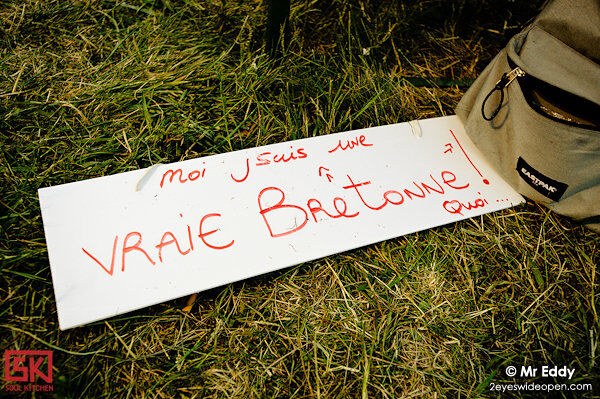 moi jsuis une
VRAIE BReTonne !
Quoi ...
EASTPAK
SK
SOUL KITCHEN
© Mr Eddy
2eyeswideopen.com